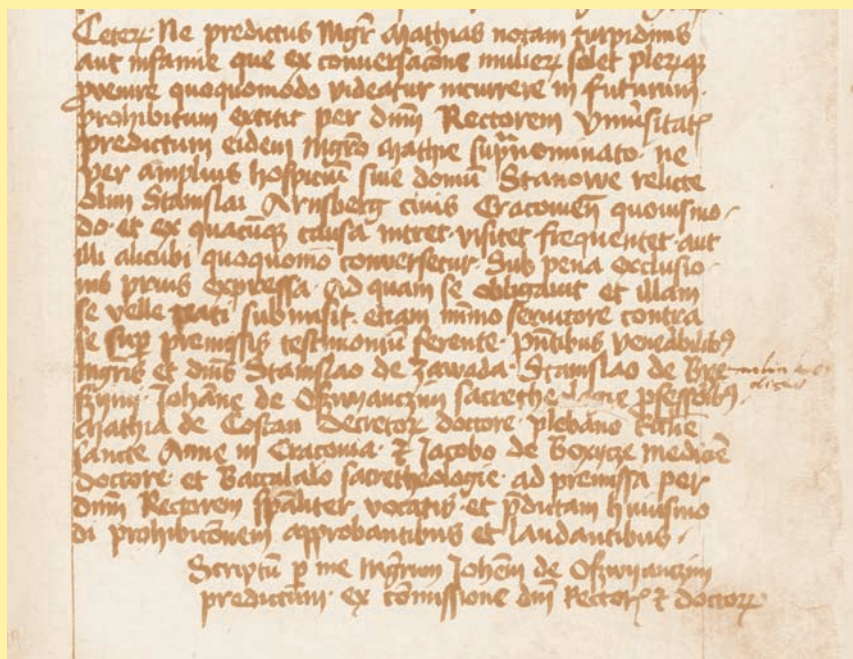 Ceterꝝ Ne predictus Mgr̄ Mathias notam turpidinis
aut infamie que ex conversacōne mulierꝝ solet plerūqꝫ
ꝓvenire quoquomodo videatur incurrere in futurum
prohibitum extitit per dnm̄ Rectorem Vniv̄sitatꝭ
predictum eidem Mgr̄o Mathie supranominato ne
per amplius hospiciū sive domū Stanowe relicte
olim Stanislai Arnsberg civis Cracovien̄ quovismo
do et ex quacūqꝫ causa intret visitet frequentet aut
illi alicubi quoquomō conversetur Sub pena exclusio
nis prius expressa ad quam se obligavit et illam
se velle pati submisit etiam in̄mo servitore contra
se suꝑ premissis testimoniū ferente pn̄tibus venerabilibꝫ
mgris et dn̄is Stanislao de Zawada Stanislao de Brze
Johāne de Oswyanczim sacretheologie ꝓfessoribꝫ
Mathia de Costan Decretoꝝ doctore plebano
sancte Anne in Cracovia et Jacobo de Boxicze medicīe
doctore et Baccalario sacretheologie ad premissa per
dnm̄ Rectorem sp̄aliter vocatis et p̄dictam huiusmo
di prohibicōnem approbantibus et laudantibus
Scriptū ꝑ me Mgr̄um Johēm de Oswyanczim
predictum ex cōmissione dn̄i Rectorꝭ et doctoꝝ